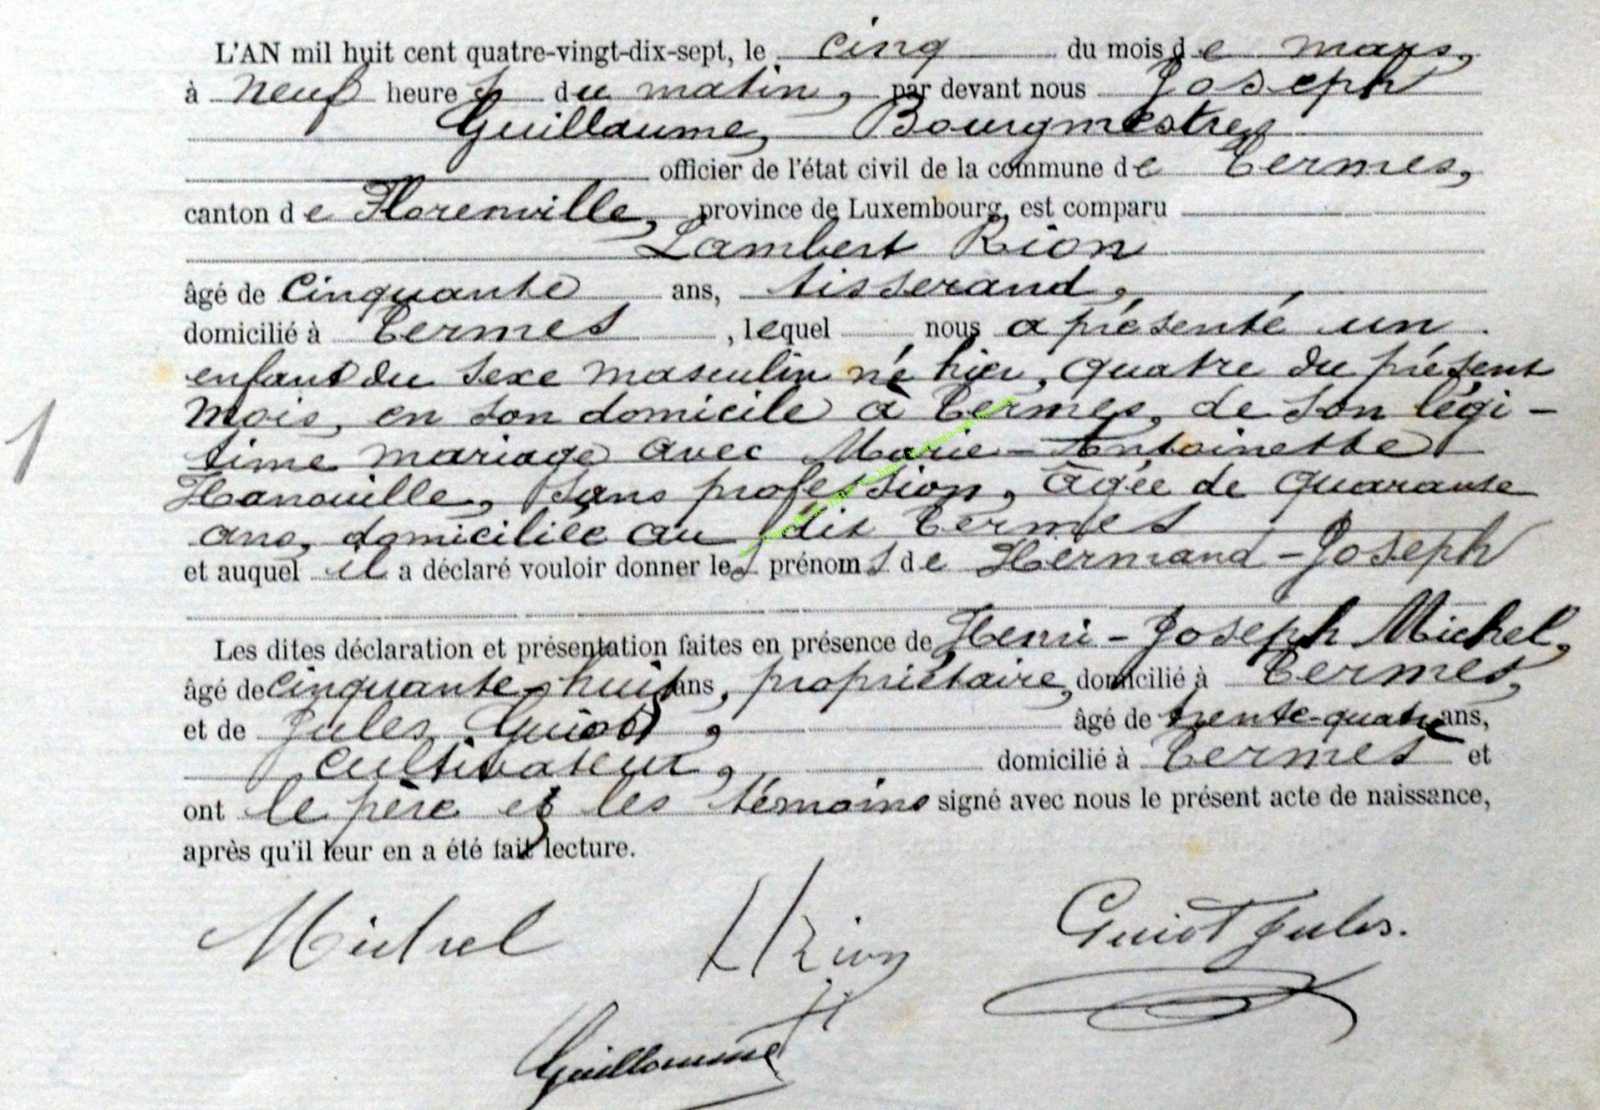 L'AN mil huit cent quatre-vingt-dix-sept, le cinq du mois de mars,
à neuf heures du matin, par devant nous Joseph
Guillaume, Bourgmestre,
officier de l'état civil de la commune de Termes,
canton de Florenville, province de Luxembourg, est comparu
Lambert Rion
âgé de cinquante ans, tisserand,
domicilié à Termes, lequel nous a présenté un
enfant du sexe masculin né hier, quatre du présent
mois, en son domicile à Termes, de son légi-
time mariage avec Marie-Antoinette
Hanouille, sans profession, âgée de quarante
ans, domiciliée au dit Termes
et auquel il a déclaré vouloir donner les prénoms de Hermand-Joseph
Les dites déclaration et présentation faites en présence de Henri-Joseph Michel,
âgé de cinquante-huit ans, propriétaire, domicilié à Termes,
et de Jules Guiot, âgé de trente-quatre ans,
cultivateur, domicilié à Termes et
ont le père et les témoins signé avec nous le présent acte de naissance,
après qu'il leur en a été fait lecture.
Michel LRion Guiot Jules.
Guillaume